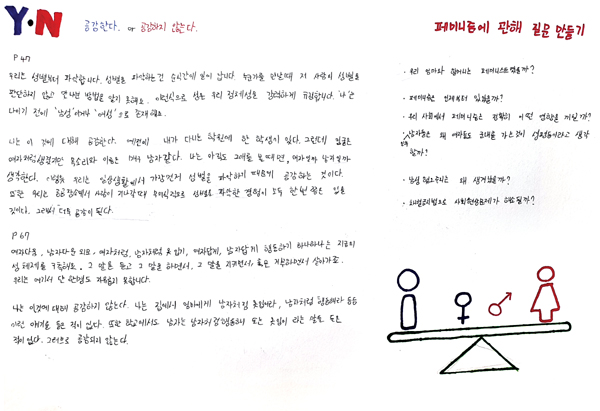 Y·N 공감한다. or 공감하지 않는다.
P 47
우리는 성별부터 파악합니다. 성별을 파악하는건 순식간에 일어 납니다. 누군가를 만날때 저 사람이 성별을
판단하지 않고 만나는 방법을 알지 못해요. 이런식으로 성은 우리 정체성을 강력하게 규정합니다. '나'는
나이기 전에 '남성'이거나 '여성'으로 존재해요.
나는 이 것에 대해 공감한다. 예전에 내가 다니는 학원에 한 학생이 있다. 그런데 얼굴은
여자처럼 생겼지만 목소리와 이름은 남자 같다. 나는 아직도 그애를 볼 때면, 여자일까 남자일까
생각한다. 이렇듯 우리는 일상생활에서 가장먼저 성별을 파악하기 때문에 공감하는 것이다.
또한 우리는 공공장소에서 사람이 지나갈때 무의식적으로 성별로 파악한 경험이 모두 한번 쯤은 있을
것이다. 그래서 더욱 공감이 된다.
P 67
여자다움, 남자다운 외모, 여자처럼, 남자처럼 옷 입기, 여자답게, 남자답게 행동하기 하나하나는 지금의
성 체제를 구축해요. 그 말을 듣고 그 말을 하면서, 그 말을 지키면서, 혹은 거부하면서 살아가죠.
우리는 여기서 단 한번도 자유롭지 못합니다.
나는 이것에 대해 공감하지 않는다. 나는 집에서 엄마에게 남자처럼 옷입어라, 남자처럼 행동해라 등등
이런 얘기를 들은 적이 없다. 또한 학교에서도 남자는 남자처럼 행동하고 또는 옷입어 라는 말을 들은
적이 없다. 그러므로 공감되지 않는다.
페미니즘에 관해 질문 만들기
· 우리 엄마와 할머니는 페미니스트였을까?
· 페미니즘은 언제부터 있었을까?
· 우리 사회에서 페미니즘은 정확히 어떤 영향을 끼칠까?
· 남자들은 왜 여자들도 군대를 가는것이 성평등이라고 생각
할까?
· 남성 혐오주의는 왜 생겨났을까?